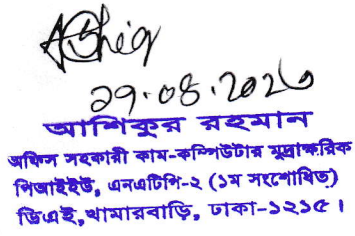 Ashiq
২৭.০৪.২০২৩
আশিকুর রহমান
অফিস সহকারী কাম-কম্পিউটার মুদ্রাক্ষরিক
পিআইইউ, এনএটিপি-২ (১ম সংশোধিত)
ডিএই, খামারবাড়ি, ঢাকা-১২১৫।